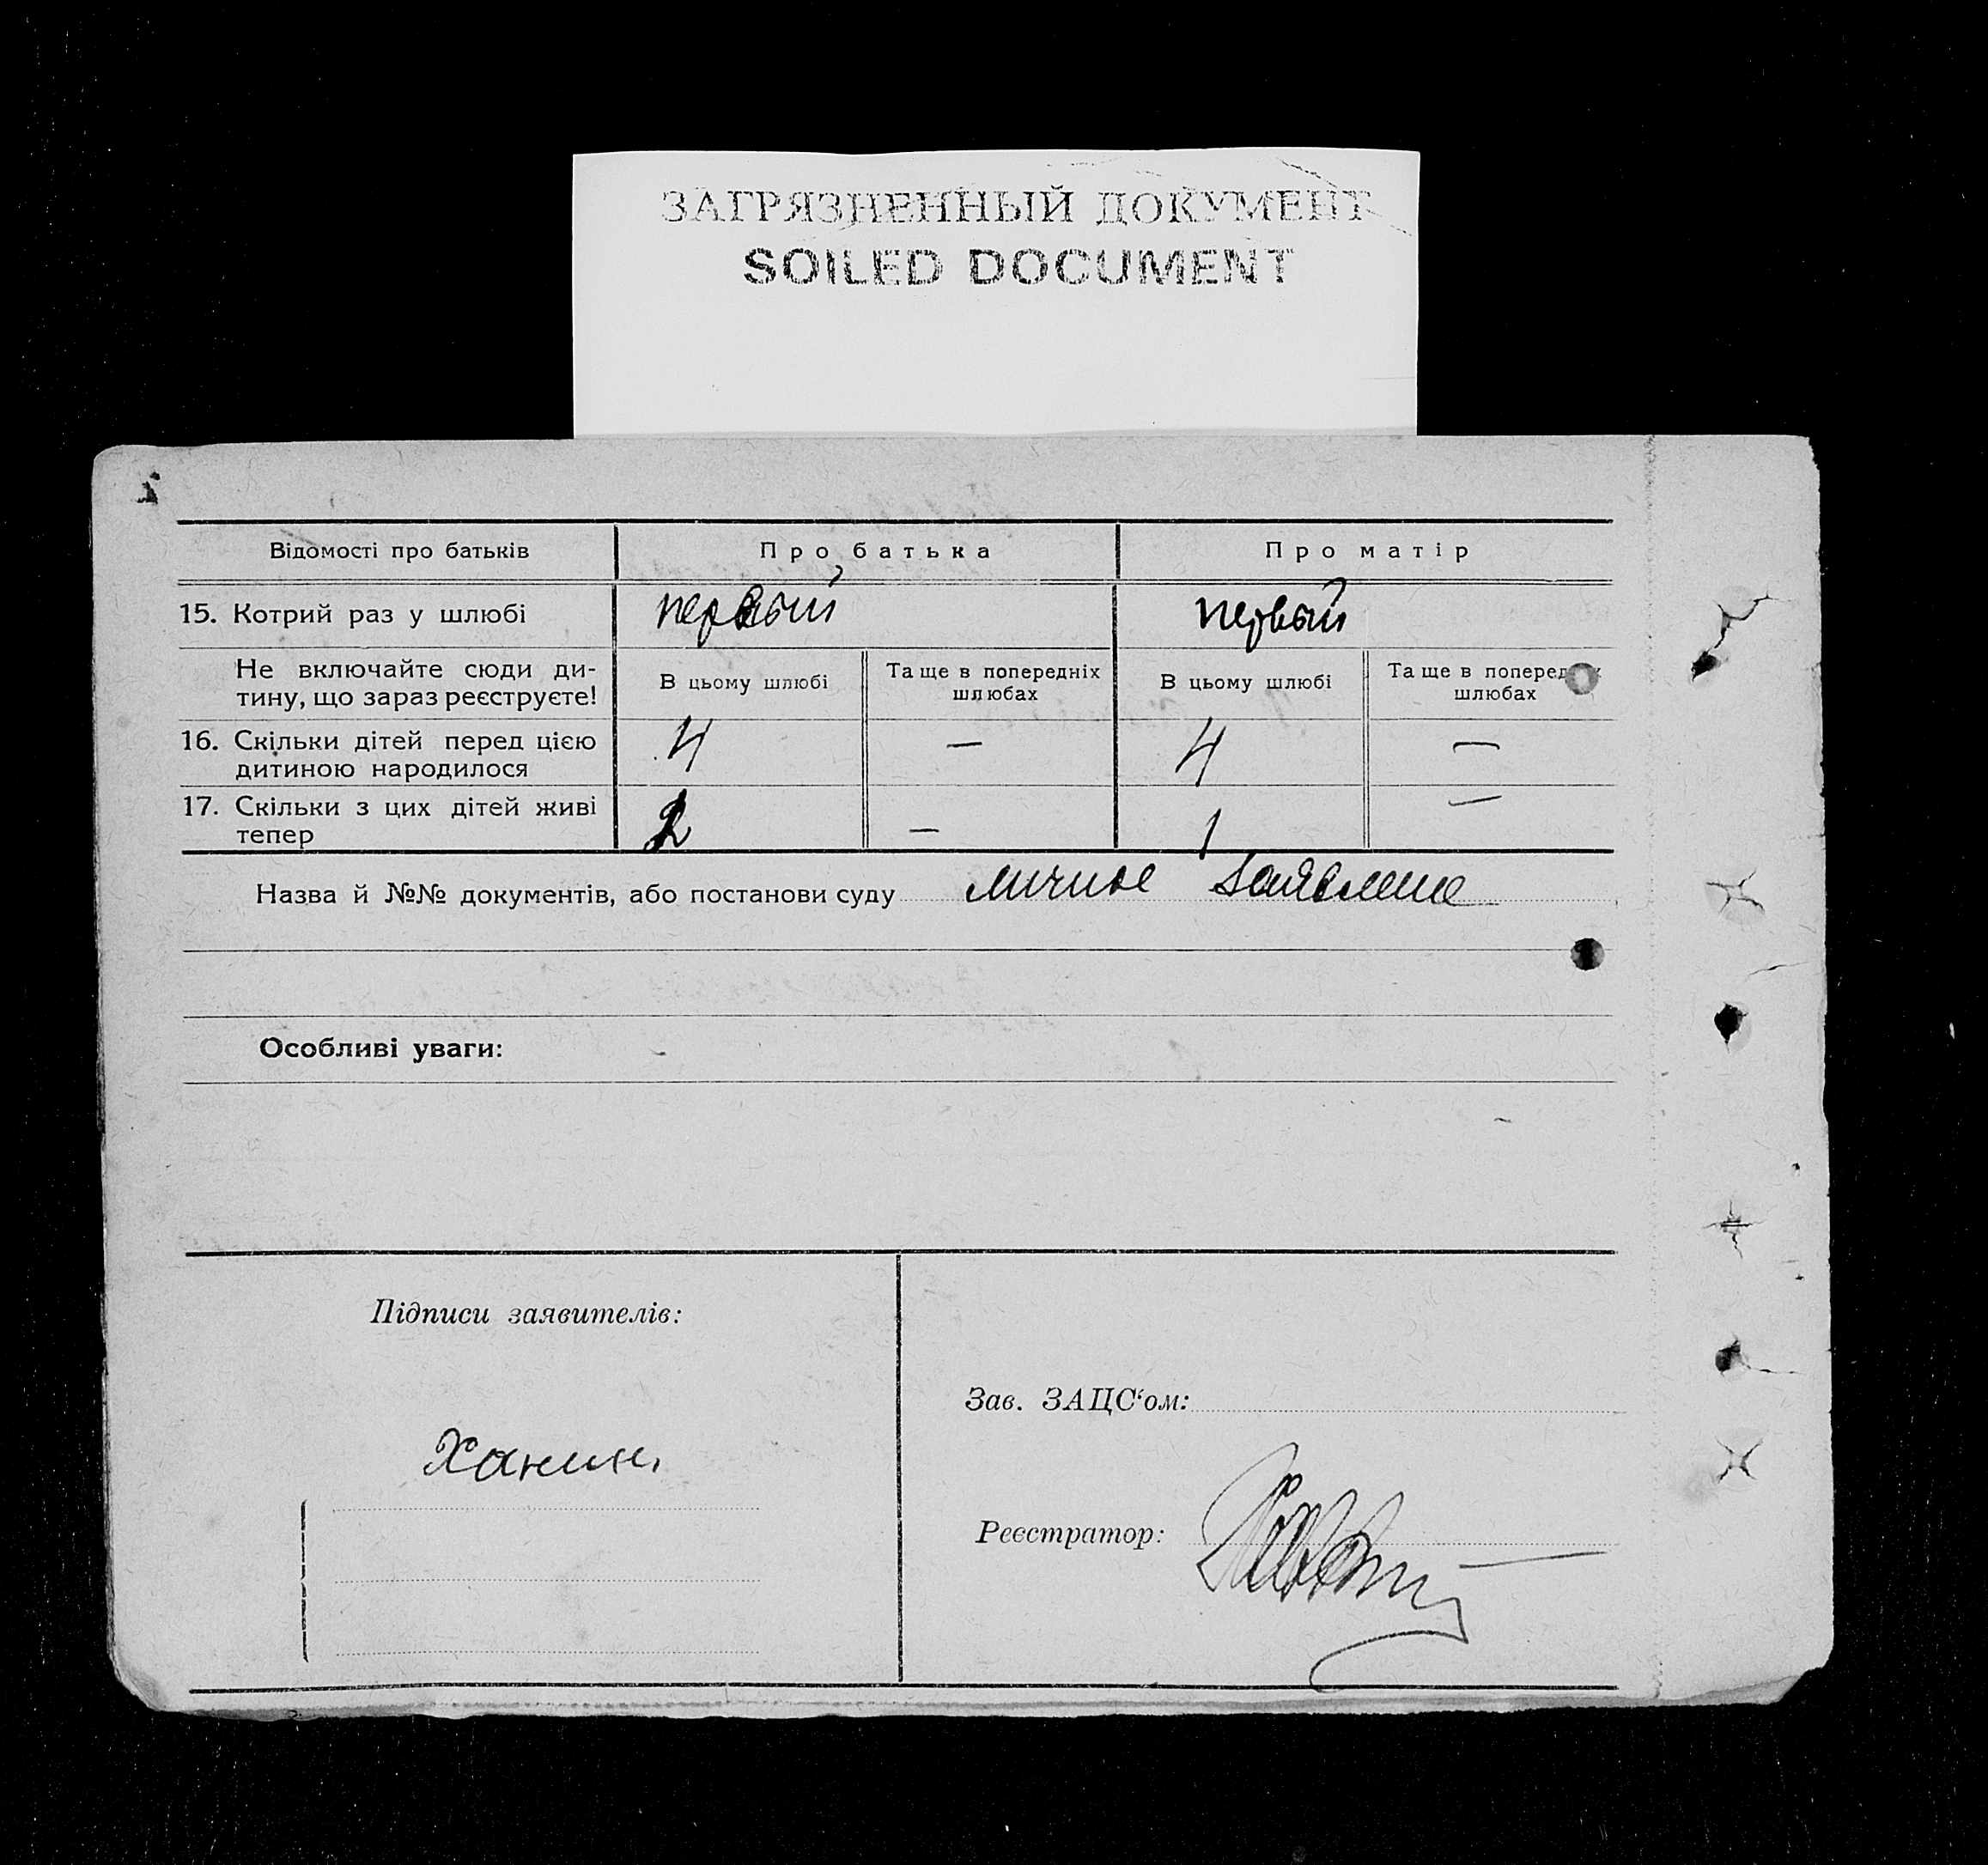 ЗАГРЯЗНЕННЫЙ ДОКУМЕНТ
SOILED DOCUMENT
Відомості про батьків Про батька Про матір
15. Котрий раз у шлюбі первый первый
Не включайте сюди ди-
тину, що зараз реєструєте!
В цьому шлюбі
Та ще в попередніх
шлюбах
В цьому шлюбі
Та ще в поперед
шлюбах
16. Скільки дітей перед цією
дитиною народилося
4 — 4 —
17. Скільки з цих дітей живі
тепер
2 — 1 —
Назва й №№ документів, або постанови суду личное
Особливі уваги:
Підписи заявителів:
Зав. ЗАЦС‘ом:
Ханин
Реєстратор: